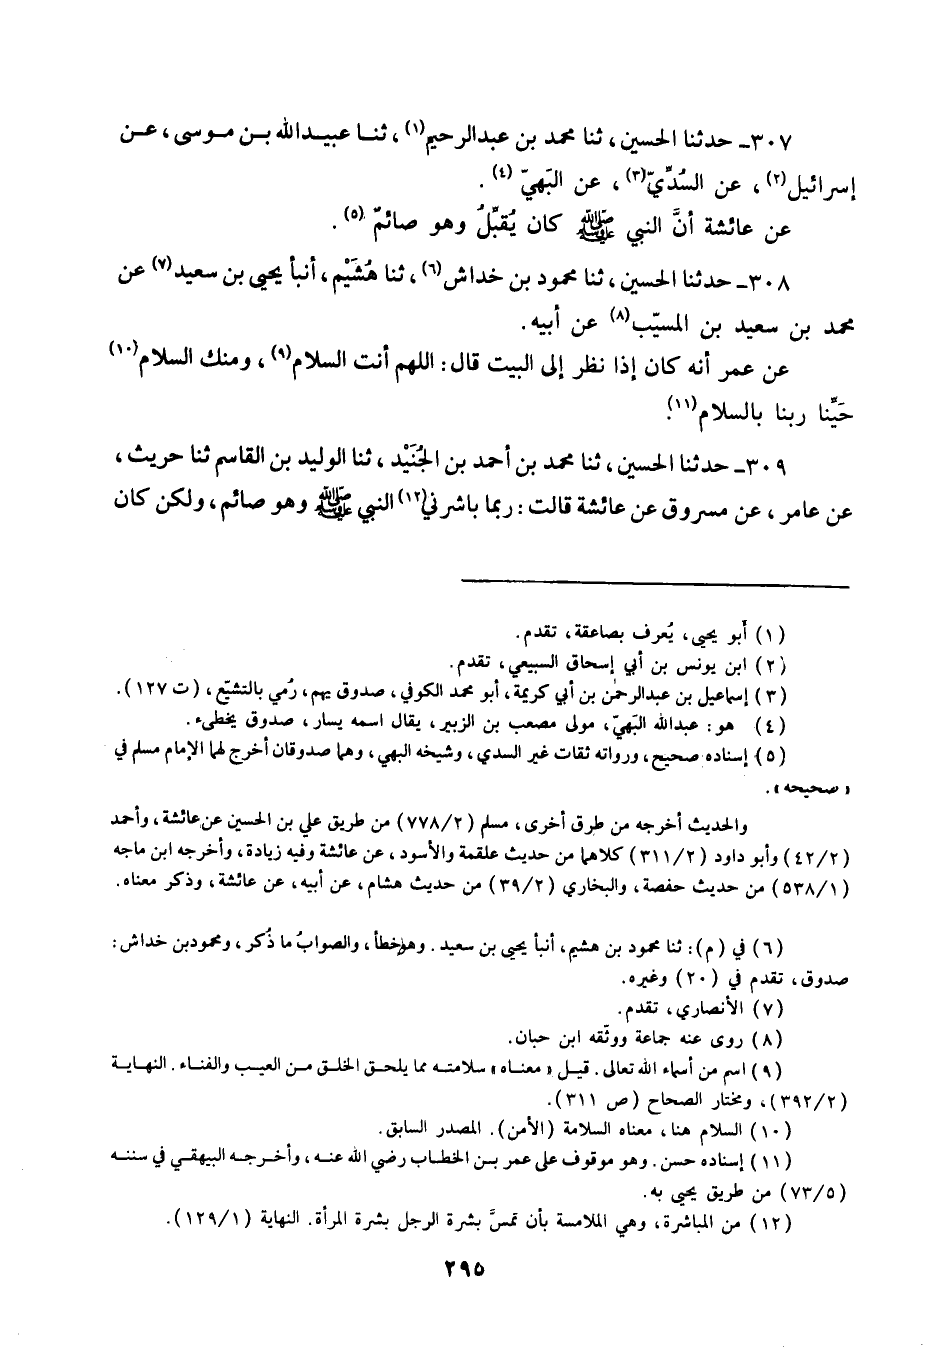 ٣٠٧ـ حدثنا الحسين، ثنا محمد بن عبدالرحيم(١)، ثنا عبيدالله بن موسى، عن
إسرائيل(٢)، عن السُدِّيّ(٣)، عن البَهيّ (٤).
عن عائشة أنَّ النبي ﷺ كان يُقبِّلُ وهو صائمٌ (٥).
٣٠٨ـ حدثنا الحسين، ثنا محمود بن خداش(٦)، ثنا هُشَيْم، أنبأ يحيى بن سعيد(٧) عن
محمد بن سعيد بن المسيّب(٨) عن أبيه.
عن عمر أنه كان إذا نظر إلى البيت قال: اللهم أنت السلام(٩)، ومنك السلام(١٠)
حَيِّنا ربنا بالسلام(١١).
٣٠٩ـ حدثنا الحسين، ثنا محمد بن أحمد بن الجُنَيْد، ثنا الوليد بن القاسم ثنا حريث،
عن عامر، عن مسروق عن عائشة قالت: ربما باشرني(١٢) النبي ﷺ وهو صائم، ولكن كان
(١) أبو يحيى، يُعرف بصاعقة، تقدم.
(٢) ابن يونس بن أبي إسحاق السبيعي، تقدم.
(٣) إسماعيل بن عبدالرحمٰن بن أبي كريمة، أبو محمد الكوفي، صدوق يهم، رُمي بالتشيّع، (ت ١٢٧).
(٤) هو: عبدالله البَهيّ، مولى مصعب بن الزبير، يقال اسمه يسار، صدوق يخطىء.
(٥) إسناده صحيح، ورواته ثقات غير السدي، وشيخه البهي، وهما صدوقان أخرج لهما الإمام مسلم في
«صحيحه».
والحديث أخرجه من طرق أخرى، مسلم (٧٧٨/٢) من طريق علي بن الحسين عن عائشة، وأحمد
(٤٢/٢) وأبو داود (٣١١/٢) كلاهما من حديث علقمة والأسود، عن عائشة وفيه زيادة، وأخرجه ابن ماجه
(٥٣٨/١) من حديث حفصة، والبخاري (٣٩/٢) من حديث هشام، عن أبيه، عن عائشة، وذكر معناه.
(٦) في (م): ثنا محمود بن هشيم، أنبأ يحيى بن سعيد. وهو خطأ، والصوابُ ما ذُكر، ومحمود بن خداش:
صدوق، تقدم في (٢٠) وغيره.
(٧) الأنصاري، تقدم.
(٨) روى عنه جماعة ووثّقه ابن حبان.
(٩) اسم من أسماء الله تعالى. قيل «معناه» سلامته مما يلحق الخلق من العيب والفناء. النهاية
(٣٩٢/٢)، ومختار الصحاح (ص ٣١١).
(١٠) السلام هنا، معناه السلامة (الأمن). المصدر السابق.
(١١) إسناده حسن. وهو موقوف على عمر بن الخطاب رضي الله عنه، وأخرجه البيهقي في سننه
(٧٣/٥) من طريق يحيى به.
(١٢) من المباشرة، وهي الملامسة بأن تمسَّ بشرة الرجل بشرة المرأة. النهاية (١٢٩/١).
٢٩٥